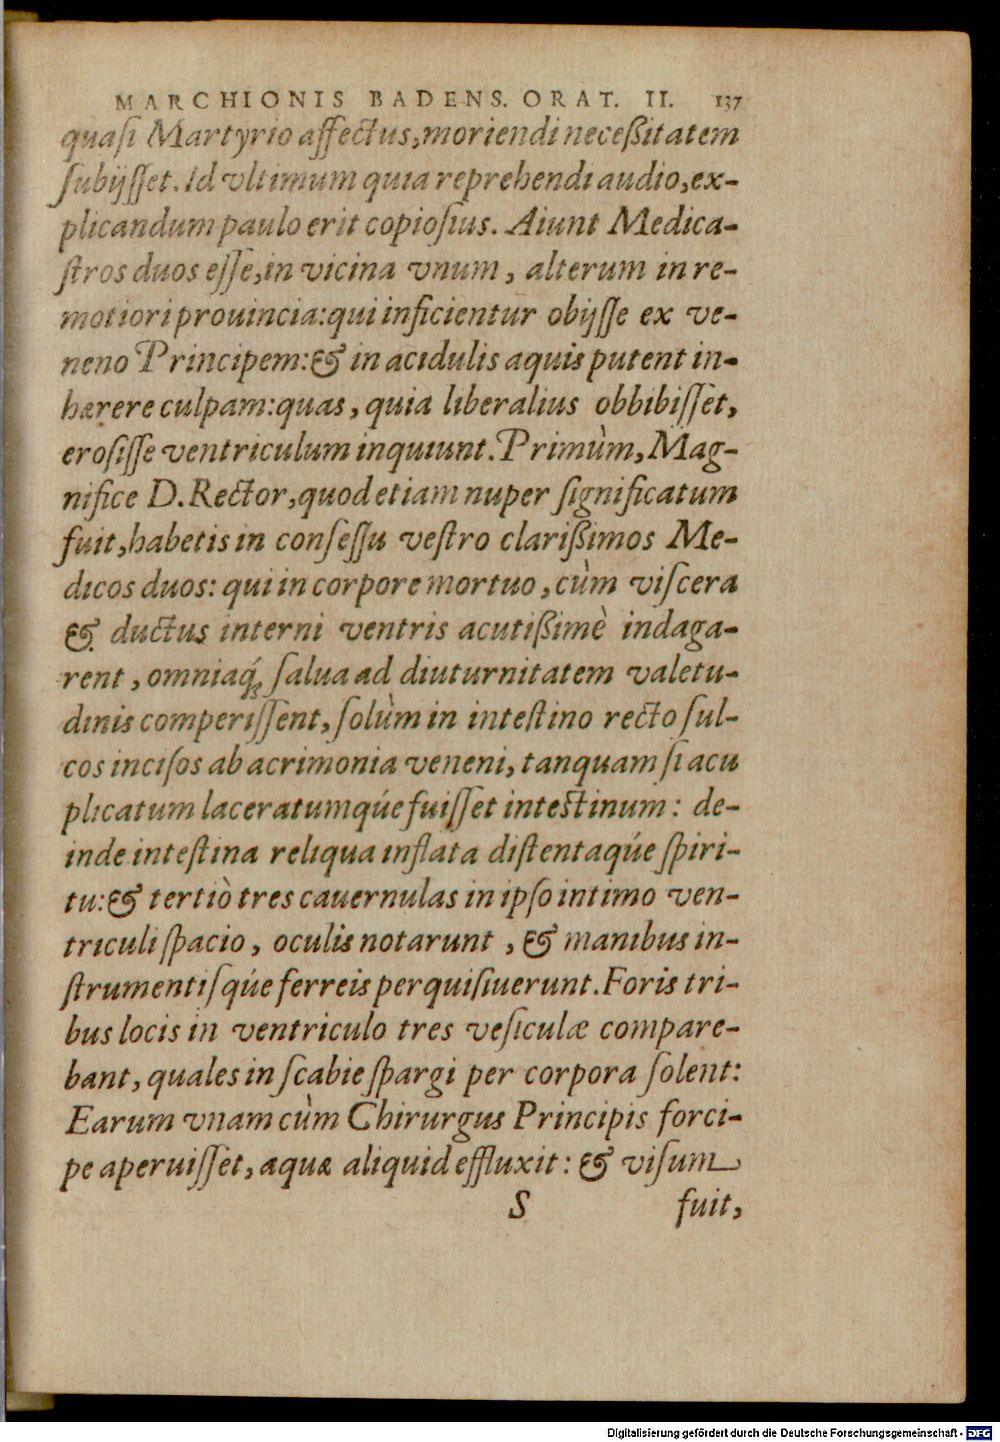 MARCHIONIS BADENS. ORAT. II. 137
quaſi Martyrio affectus, moriendi neceßitatem
ſubijſſet. Id vltimum quia reprehendi audio, ex-
plicandum paulo erit copioſius. Aiunt Medica-
ſtros duos eſſe, in vicina vnum, alterum in re-
motiori prouincia: qui inficientur obijſſe ex ve-
neno Principem: & in acidulis aquis putent in-
hærere culpam: quas, quia liberalius obbibiſſet,
eroſiſſe ventriculum inquiunt. Primùm, Mag-
nifice D. Rector, quod etiam nuper ſignificatum
fuit, habetis in conſeſſu veſtro clarißimos Me-
dicos duos: qui in corpore mortuo, cùm viſcera
& ductus interni ventris acutißimè indaga-
rent, omniaq́ꝫ ſalua ad diuturnitatem valetu-
dinis comperiſſent, ſolùm in inteſtino recto ſul-
cos inciſos ab acrimonia veneni, tanquam ſi acu
plicatum laceratumqúe fuiſſet inteſtinum: de-
inde inteſtina reliqua inflata diſtentaqúe ſpiri-
tu: & tertiò tres cauernulas in ipſo intimo ven-
triculi ſpacio, oculis notarunt, & manibus in-
ſtrumentiſqúe ferreis perquiſiuerunt. Foris tri-
bus locis in ventriculo tres veſiculæ compare-
bant, quales in ſcabie ſpargi per corpora ſolent:
Earum vnam cùm Chirurgus Principis forci-
pe aperuiſſet, aquæ aliquid effluxit: & viſum
S fuit,
Digitalisierung gefördert durch die Deutsche Forschungsgemeinschaft - DFG